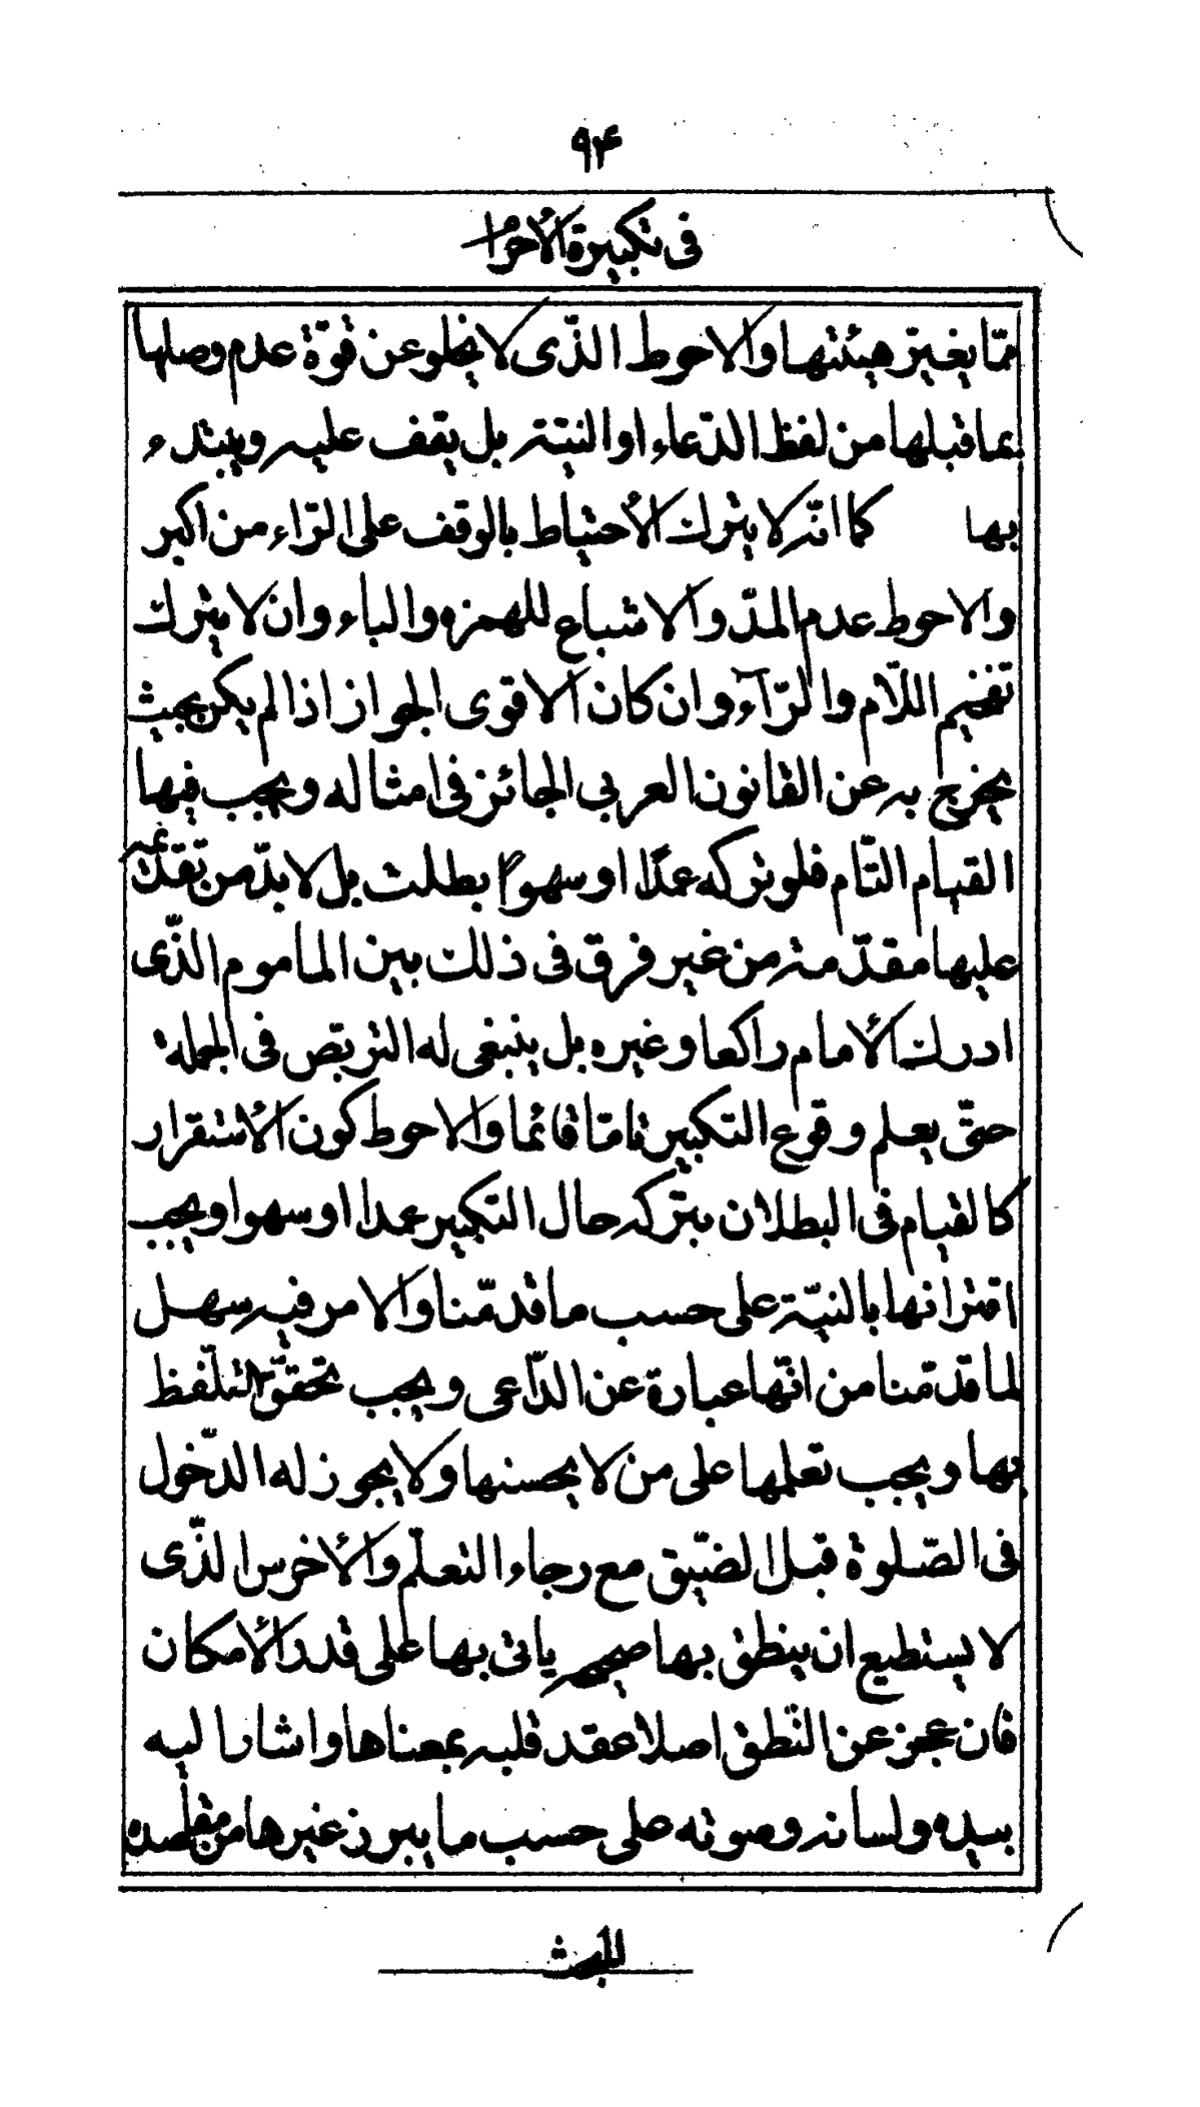 ۹۴
فى تكبيرة الأحرام
ممّا يغيّر هيئتها والاحوط الذّى لا يخلو عن قوّة عدم وصلها
بما قبلها من لفظ الدّعاء او النيّة بل يقف عليه ويبتدء
بها كما انّه لا يترك الأحتياط بالوقف على الرّاء من اكبر
والاحوط عدم المدّ والاشباع للهمزه والباء وان لا يترك
تفخيم اللّام والرّآء وان كان الاقوى الجواز اذا لم يكن بحيث
يخرج به عن القانون العربى الجائز فى امثاله ويجب فيها
القيام التّام فلو تركه عمدًا او سهوًا بطلت بل لا بدّ من تقدّمه
عليها مقدّمة من غير فرق فى ذلك بين الماموم الذّى
ادرك الأمام راكعا وغيره بل ينبغى له التربص فى الجملة
حتّى يعلم وقوع التكبير تامّا قائما والاحوط كون الأستقرار
كالقيام فى البطلان بتركه حال التكبير عمدا او سهوا ويجب
اقترانها بالنيّة على حسب ما قدّمنا والامر فيه سهل
لما قدّمنا من انّها عبارة عن الدّاعى ويجب تحقّق التلّفظ
بها ويجب تعلمها على من لا يحسنها ولا يجوز له الدّخول
فى الصّلوة قبل الضّيق مع رجاء التعلّم والأخرس الذّى
لا يستطيع ان ينطق بها صحيحه ياتى بها على قدر الأمكان
فان عجز عن النّطق اصلا عقد قلبه بمعناها واشار اليه
بيده ولسانه وصوته على حسب ما يبرز غيرها من مقاصده
المبحث